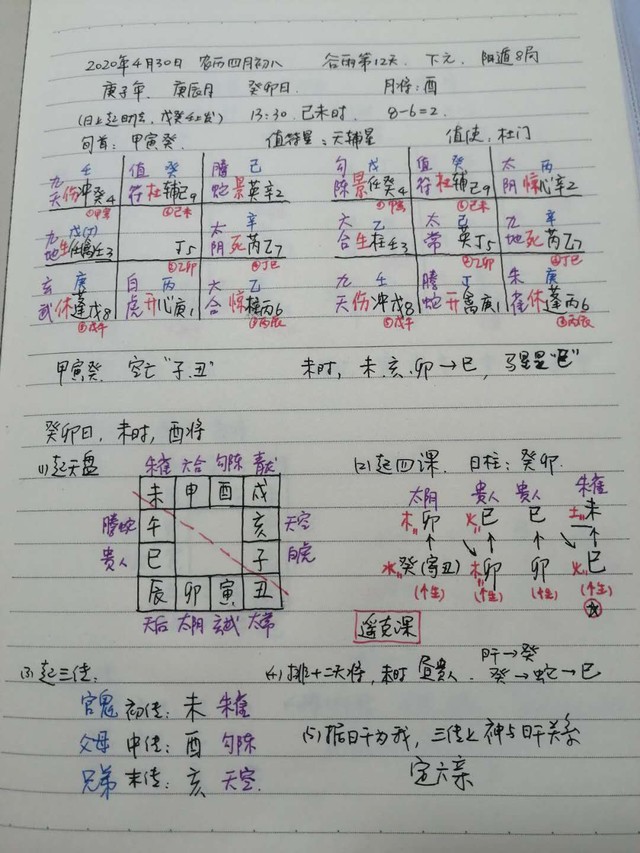 2020年4月30日 农历四月初八 谷雨第12天. 下元. 阳遁8局
庚子年. 庚辰月 癸卯日. 月将:酉
(日上起时法, 戊癸壬上发) 13:30 己未时. 8-6=2.
旬首: 甲寅癸. 值符星:天辅星 值使:杜门
壬 值 癸 螣 己 勾 戊 值 癸 太 丙
九天 伤冲癸4 符 杜辅己9 蛇 景英辛2 陈 景任癸4 符 杜辅己9 阴 惊心辛2
九 戊(丁) 太 辛 六 乙 太 己 九 辛
地 生任禽壬3 丁5 阴 死芮乙7 合 生柱壬3 常 英丁5 地 死芮乙7
①乙卯 ④丁巳 ②乙卯 ④丁巳
玄 庚 白 丙 六 乙 九 壬 螣 丁 朱 庚
武 休蓬戊8 虎 开心庚1 合 惊柱丙6 天 伤冲戊8 蛇 开禽庚1 雀 休蓬丙6
⑤戊午 ③丙辰 ⑤戊午 ③丙辰
甲寅癸. 空亡"子.丑" 未时, 未.亥.卯→巳, 马星是"巳"
癸卯日, 未时, 酉将
(1)起天盘 朱雀 六合 勾陈 青龙
未 申 酉 戌
螣蛇 午 亥 天空
贵人 巳 子 白虎
辰 卯 寅 丑
天后 太阴 玄武 太常
(2)起四课. 日柱:癸卯.
太阴 贵人 贵人 朱雀
木 卯 火 巳 巳 土 未
水 癸(寄丑) 木 卯 卯 火 巳
(个生) (个生) (个生) (个生)
遥克课
(3)起三传.
官鬼 初传: 未 朱雀
父母 中传: 酉 勾陈
兄弟 末传: 亥 天空.
(4)排十二天将, 未时 昼贵人. 日干→癸
癸→蛇→巳
(5)据日干为我, 三传上神与日干关系
定六亲